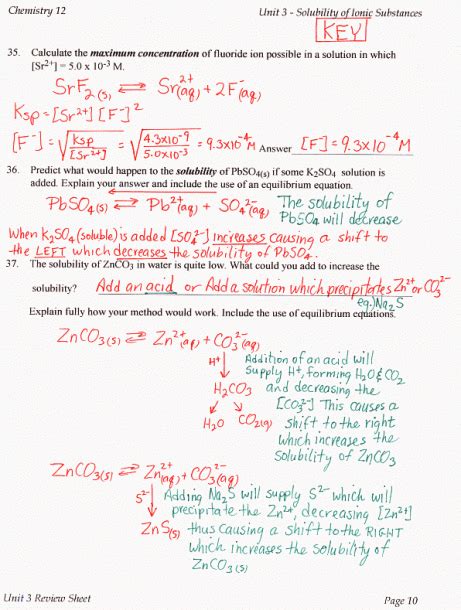 Chemistry 12
Unit 3 - Solubility of Ionic Substances
KEY
35. Calculate the maximum concentration of fluoride ion possible in a solution in which
[Sr²⁺] = 5.0 x 10⁻³ M.
SrF₂(s) ⇌ Sr²⁺(aq) + 2F⁻(aq)
Ksp = [Sr²⁺][F⁻]²
[F⁻] = √(Ksp/[Sr²⁺]) = √(4.3x10⁻⁹/5.0x10⁻³) = 9.3x10⁻⁴ M Answer [F⁻] = 9.3x10⁻⁴ M
36. Predict what would happen to the solubility of PbSO₄(s) if some K₂SO₄ solution is
added. Explain your answer and include the use of an equilibrium equation.
PbSO₄(s) ⇌ Pb²⁺(aq) + SO₄²⁻(aq) The solubility of
PbSO₄ will decrease
When K₂SO₄ (soluble) is added [SO₄²⁻] increases causing a shift to
the LEFT which decreases the solubility of PbSO₄.
37. The solubility of ZnCO₃ in water is quite low. What could you add to increase the
solubility? Add an acid or Add a solution which precipitates Zn²⁺ or CO₃²⁻
eg.) Na₂S
Explain fully how your method would work. Include the use of equilibrium equations.
ZnCO₃(s) ⇌ Zn²⁺(aq) + CO₃²⁻(aq)
H⁺↓ Addition of an acid will
supply H⁺, forming H₂O & CO₂
H₂CO₃ and decreasing the
[CO₃²⁻] This causes a
H₂O CO₂(g) shift to the right
which increases the
solubility of ZnCO₃
ZnCO₃(s) ⇌ Zn²⁺(aq) + CO₃²⁻(aq)
S²⁻↓ Adding Na₂S will supply S²⁻ which will
precipitate the Zn²⁺, decreasing [Zn²⁺]
ZnS(s) thus causing a shift to the RIGHT
which increases the solubility of
ZnCO₃(s)
Unit 3 Review Sheet
Page 10